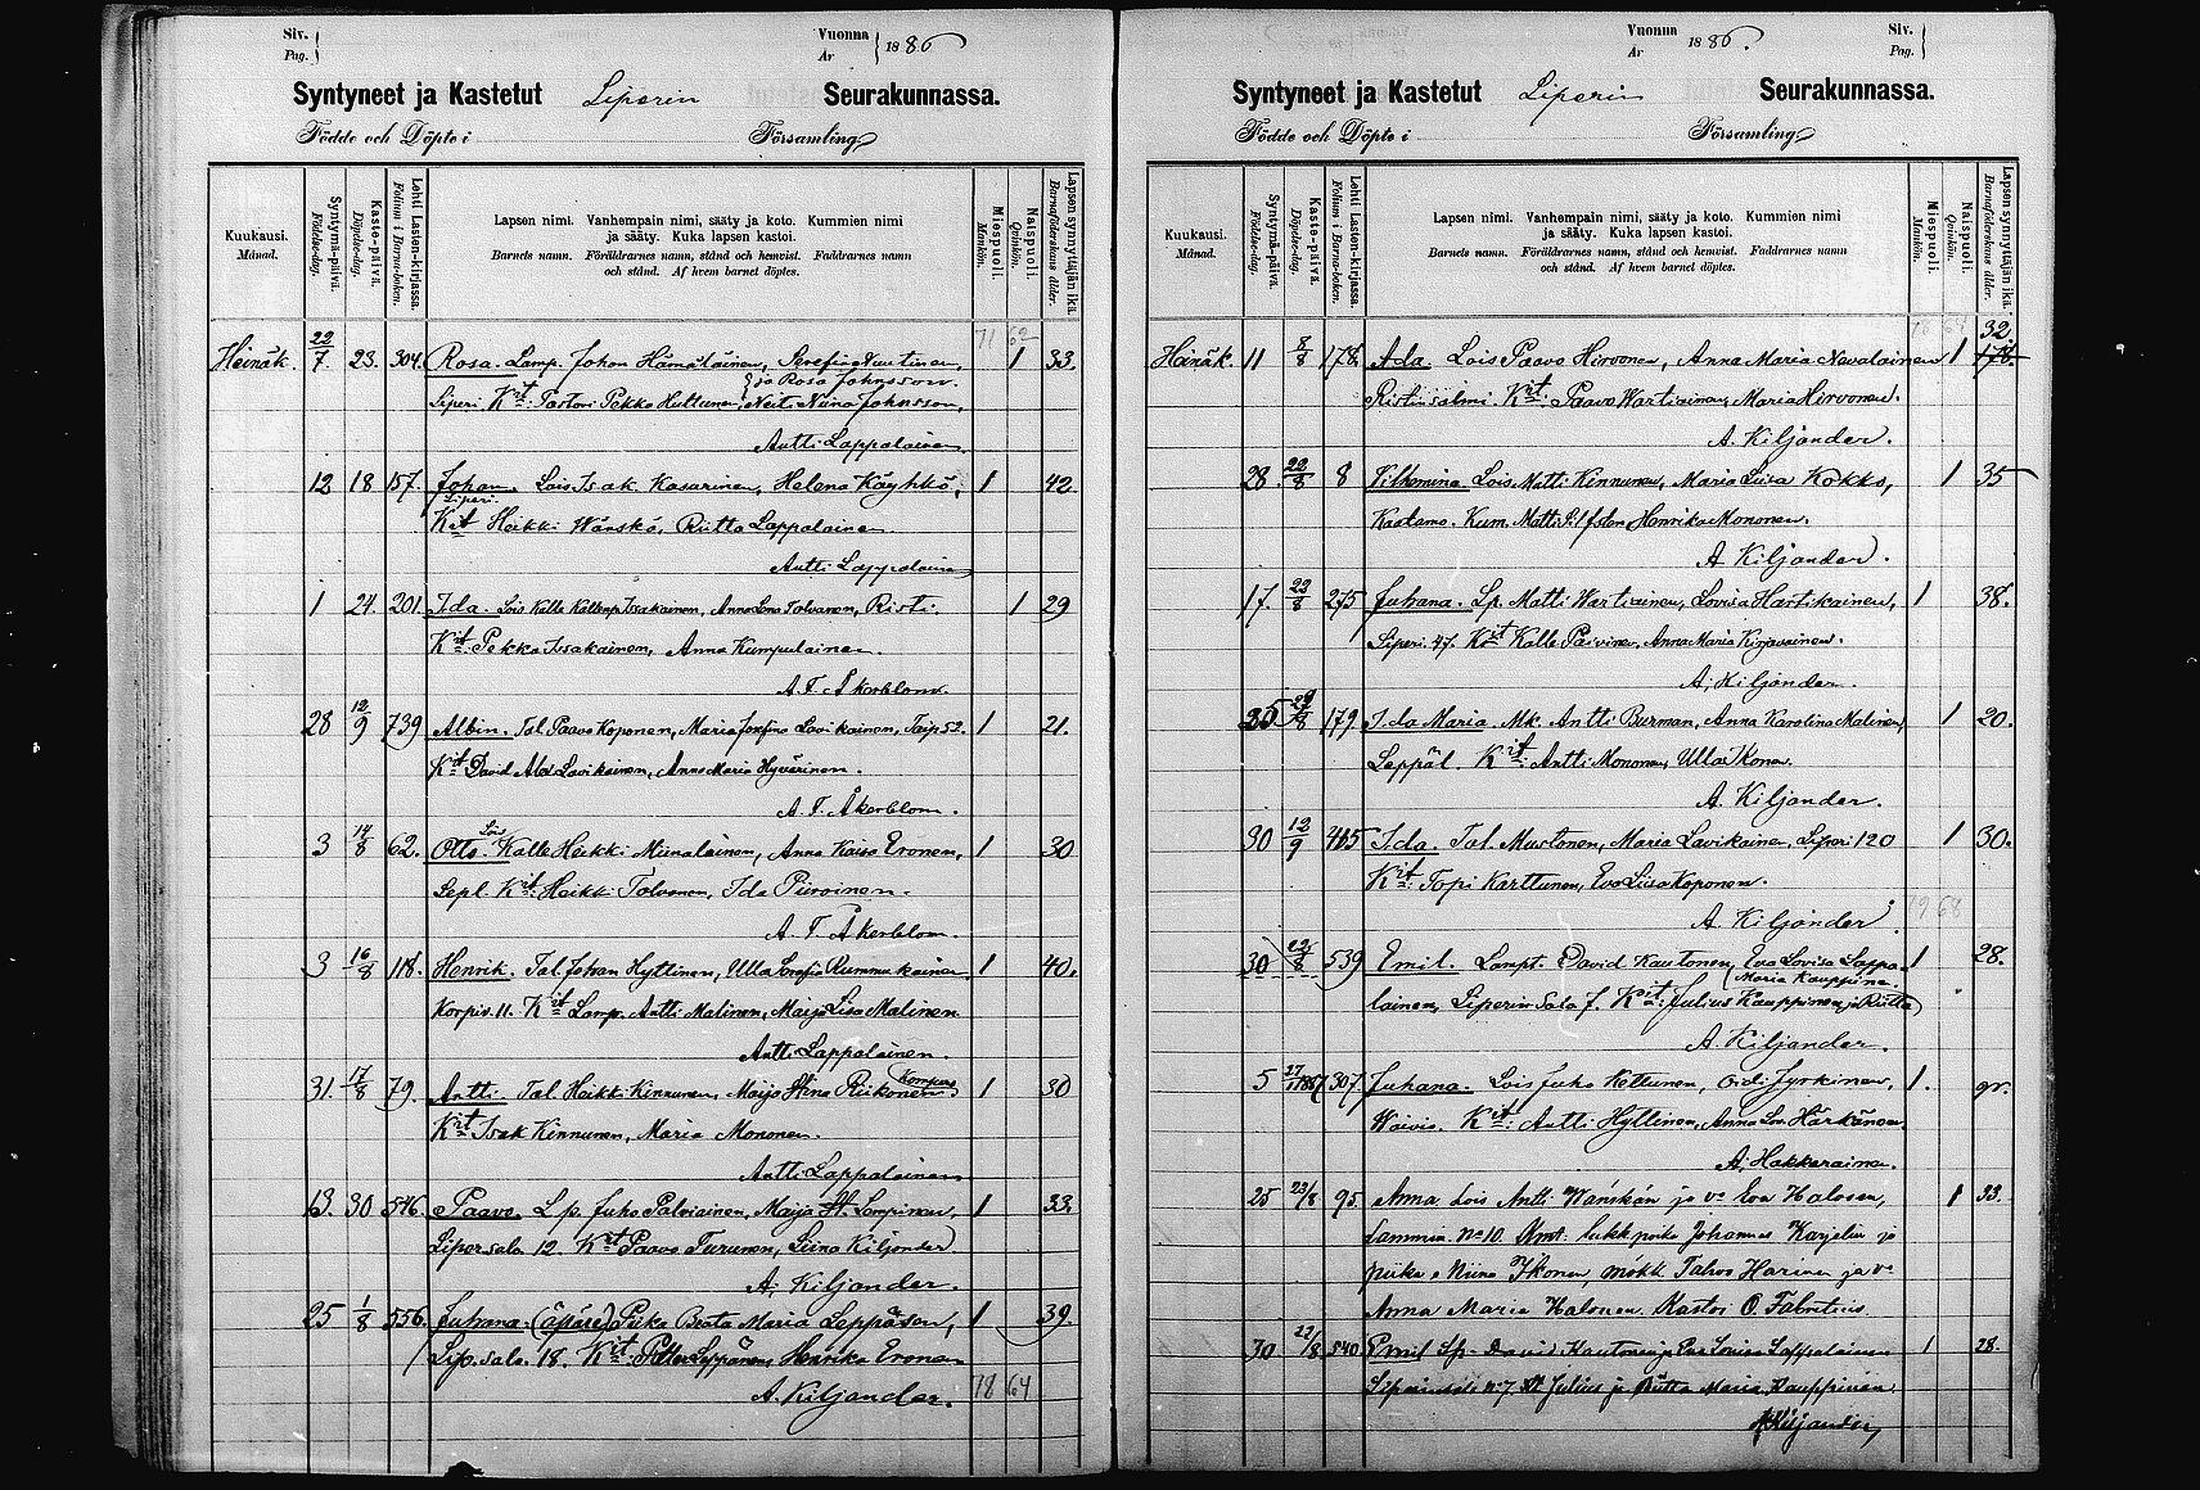 Siv. Vuonna 1886
Pag. Ar
Syntyneet ja Kastetut Liperin Seurakunnassa.
Födde och Döpte i Församling
Kuukausi.
Månad.
Syntymä-päivä.
Födelse-dag.
Kaste-päivä.
Döpelse-dag.
Lehti Lasten-kirjassa.
Folium i Barna-boken.
Lapsen nimi. Vanhempain nimi, sääty ja koto. Kummien nimi
ja sääty. Kuka lapsen kastoi.
Barnets namn. Föräldrarnes namn, stånd och hemvist. Faddrarnes namn
och stånd. Af hvem barnet döptes.
Miespuoli.
Mankön.
Naispuoli.
Qvinkön.
Lapsen synnyttäjän ikä.
Barnaföderskans ålder.
71 62
Heinäk. 22/7. 23. 304. Rosa. Lamp. Johan Hämäläinen, Serefina Nuutinen, 1 33.
ja Rosa Johnsson.
Liperi Kit: Pastori Pekka Huttunen, Neiti Niina Johnsson,
Antti Lappalainen
12 18 157. Johan. Lois Isak Kasurinen, Helena Käyhkö, 1 42.
Liperi.
Kit Heikki Wänskä, Riitta Lappalainen
Antti Lappalainen
1 24. 201. Ida. Lois Kalle Kallenp. Issakainen, Anna Lena Tolvanen, Risti. 1 29
Kit: Pekka Issakainen, Anna Kumpulainen.
A. F. Åkerblom.
28 12/9 739 Albin. Tal. Paavo Koponen, Maria Josefina Lavikainen, Taip 52. 1 21.
Kit David Alex Lavikainen, Anna Maria Hyvärinen.
A. F. Åkerblom.
Lois
3 14/8 62. Otto. Kalle Heikki Miinalainen, Anna Kaisa Eronen, 1 30
Lepl. Kit: Heikki Tolvanen, Ida Piiroinen.
A. F. Åkerblom.
3 16/8 118. Henrik. Tal. Johan Hyttinen, Ulla Serafia Rummukainen. 1 40.
Korpiv. 11. Kit Lamp. Antti Malinen, Maija Lisa Malinen.
Antti Lappalainen.
31. 17/8 79. Antti. Tal. Heikki Kinnunen, Maija Stina Riikonen. 1 30
Kit Isak Kinnunen, Maria Mononen.
Antti Lappalainen
13. 30 546. Paavo. Lp. Juho Palviainen, Maija St. Lampinen, 1 33.
Lipersalo 12. Kit Paavo Turunen, Liina Kiljander
A. Kiljander.
25 1/8 556. Juhana. (äpärä) Piika Beata Maria Leppänen, 1 39.
Lip. salo. 18. Kit: Petter Leppänen, Henrika Eronen
A. Kiljander. 78 64
Vuonna 1886. Siv.
Ar Pag.
Syntyneet ja Kastetut Liperin Seurakunnassa.
Födde och Döpte i Församling
Kuukausi.
Månad.
Syntymä-päivä.
Födelse-dag.
Kaste-päivä.
Döpelse-dag.
Lehti Lasten-kirjassa.
Folium i Barna-boken.
Lapsen nimi. Vanhempain nimi, sääty ja koto. Kummien nimi
ja sääty. Kuka lapsen kastoi.
Barnets namn. Föräldrarnes namn, stånd och hemvist. Faddrarnes namn
och stånd. Af hvem barnet döptes.
Miespuoli.
Mankön.
Naispuoli.
Qvinkön.
Lapsen synnyttäjän ikä.
Barnaföderskans ålder.
32.
Heinäk. 11 8/8 178. Ada. Lois Paavo Hirvonen, Anna Maria Nevalainen 1 178.
Ristinsalmi. Kit: Paavo Wartiainen, Maria Hirvonen.
A. Kiljander.
28. 22/8 8 Vilhemina. Lois. Matti Kinnunen, Maria Liisa Kokko, 1 35
Kaatamo. Kum. Matti Henrika Mononen.
A. Kiljander.
17. 22/8 275 Juhana. Lp. Matti Wartiainen, Lovisa Hartikainen, 1 38.
Liperi. 47. Kit Kalle Päivinen, Anna Maria Kirjavainen.
A. Kiljander.
25 29/8 179. Ida Maria. Mk. Antti Burman, Anna Karolina Malinen, 1 20.
Leppäl. Kit: Antti Mononen, Ulla Ikonen.
A. Kiljander.
30 12/9 465 Ida. Tal. Mustonen, Maria Lavikainen, Liperi 120 1 30.
Kit: Topi Karttunen, Eva Liisa Koponen.
A. Kiljander. 79 68
30 22/8 539 Emil. Lampt. David Kautonen, Eva Lovisa Lappa- 1 28.
Maria Kauppinen.
lainen, Liperin Salo 7. Kit: Julius Kauppinen ja Riitta
A. Kiljander.
5 17/1 1887 307. Juhana. Lois Juho Kettunen, Jyrkinen, 1.
Waivio. Kit: Antti Hyttinen, Anna Lov. Härkänen
A. Hakkarainen.
25 23/8 95. Anna Lois Antti Wänskän ja vo Eva Halosen, 1 33.
Lammin. No 10. Kmt: lukk.poika Johannes Karjelin ja
piika Niina Ikonen, mökk. Tahvo Harinen ja vo
Anna Maria Halonen. Kastoi O. Fabritius.
30 22/8 540. Emil Lp. David Kautonen ja Eva Lovisa Lappalainen 1 28.
Liperinsalo No 7. Kt Julius ja Riitta Maria Kauppinen.
A Kiljander,